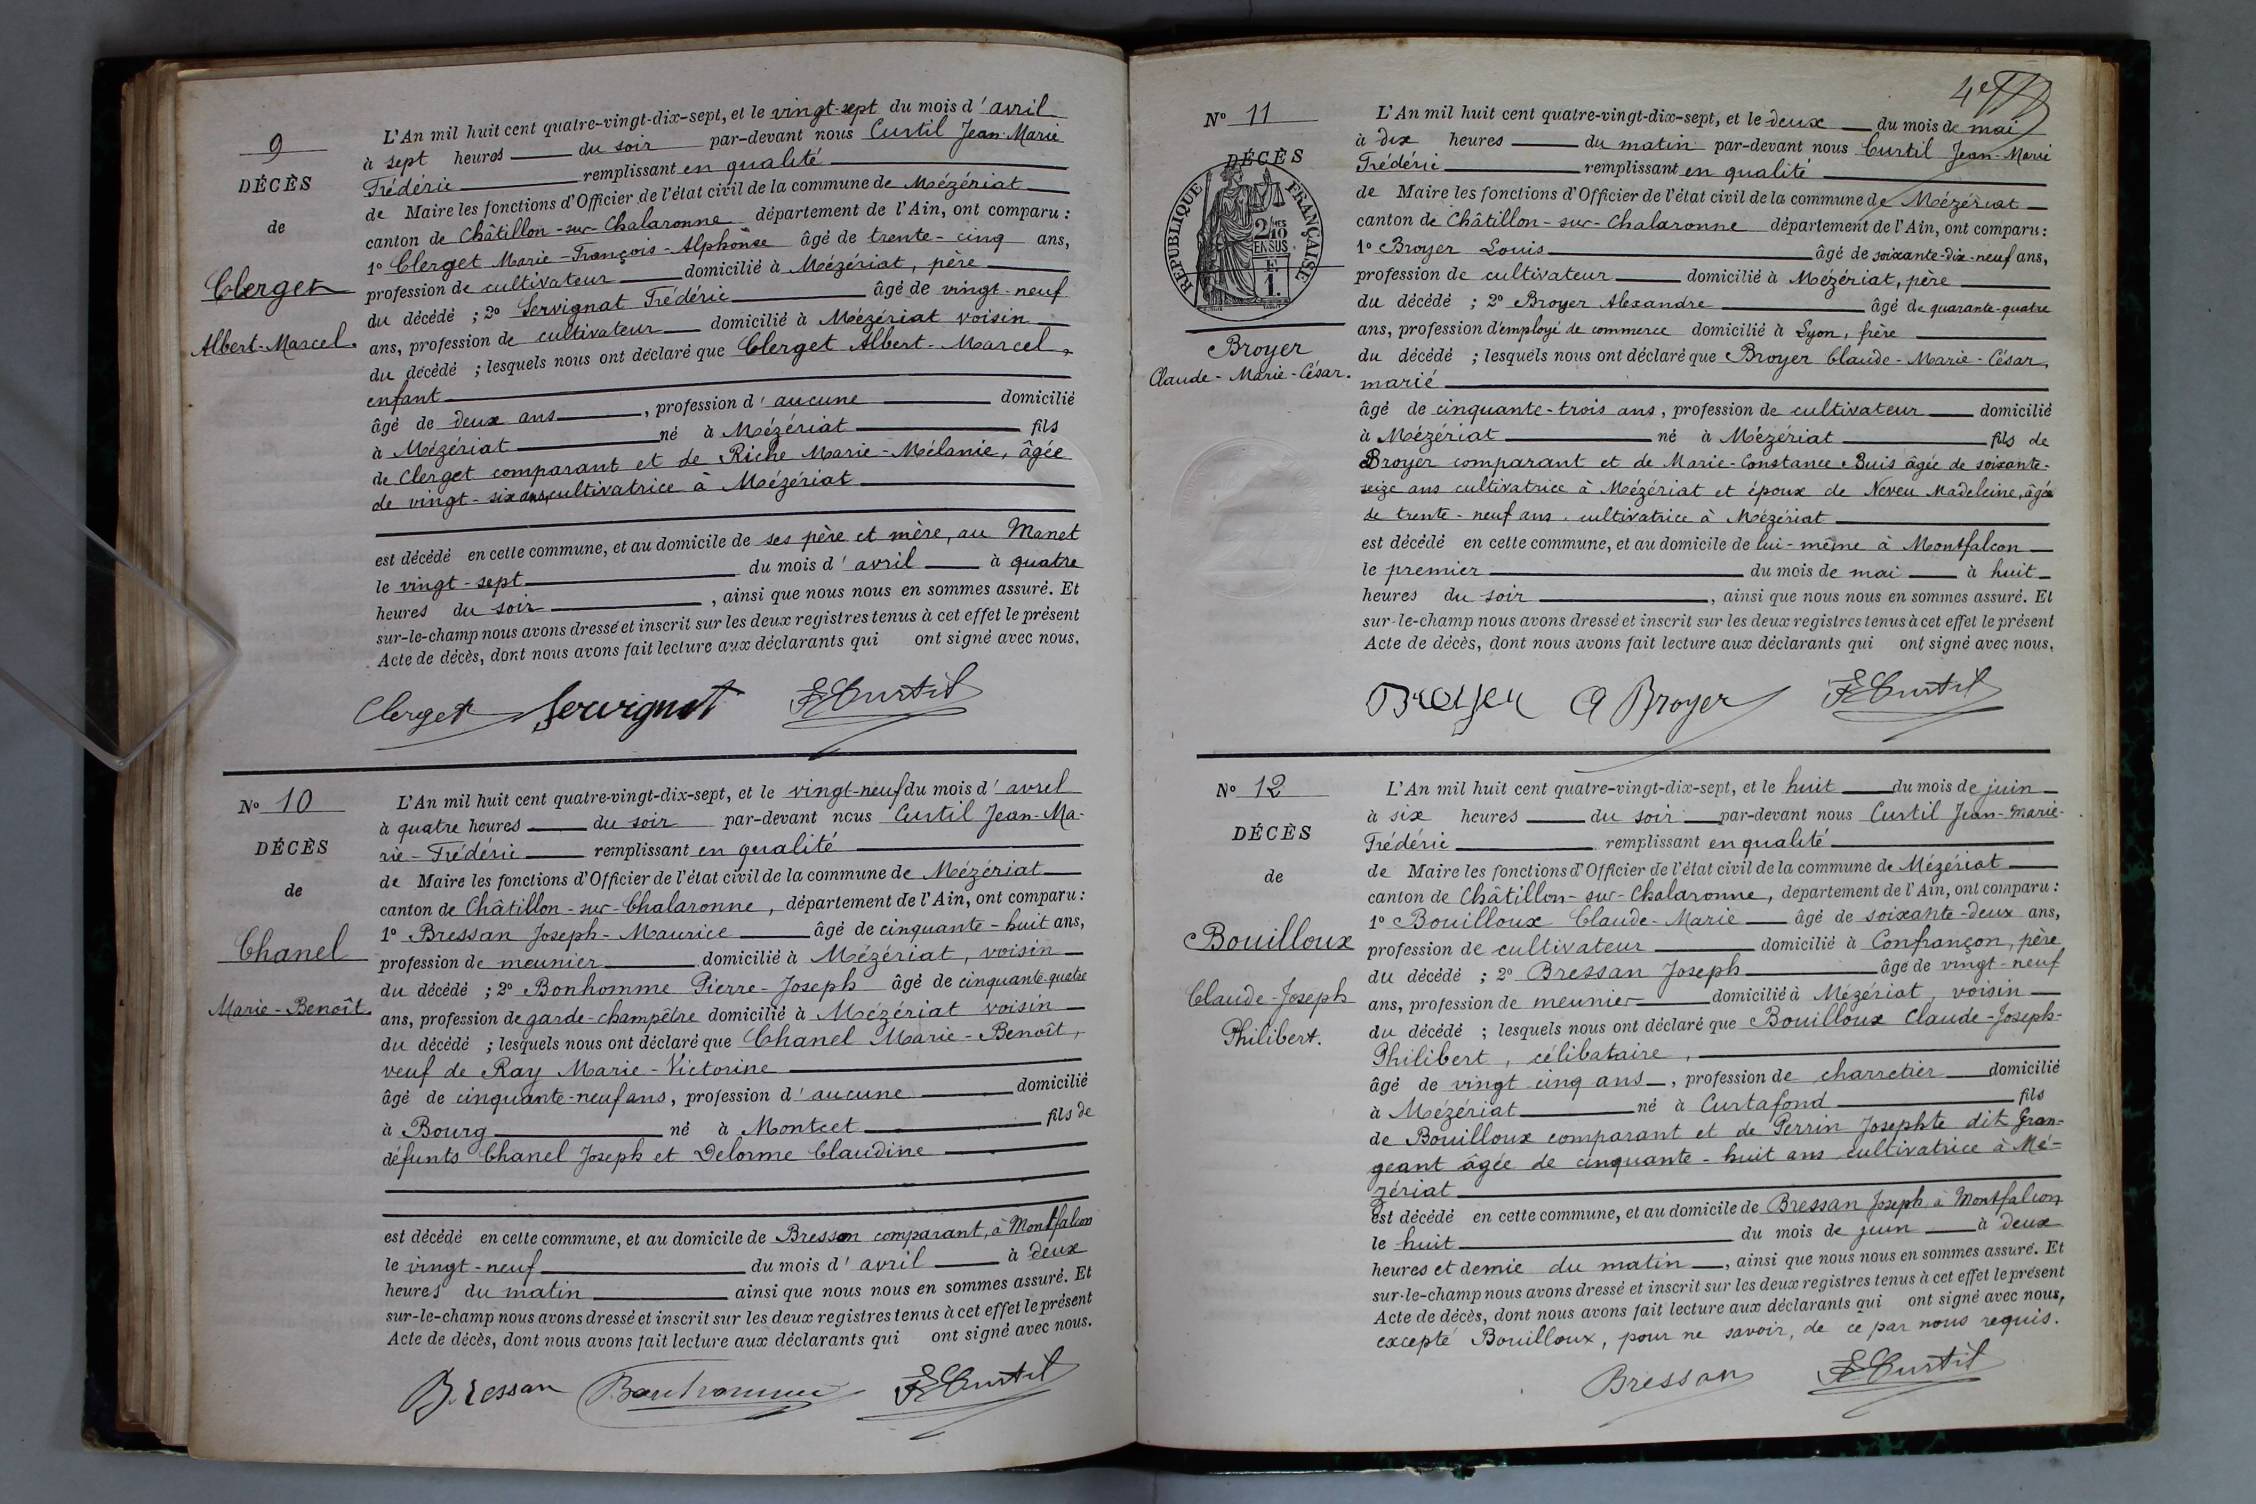 9
DÉCÈS
de
Clerget
Albert-Marcel.
L'An mil huit cent quatre-vingt-dix-sept, et le vingt-sept du mois d'avril
à sept heures du soir par-devant nous Curtil Jean-Marie
Frédéric remplissant en qualité
de Maire les fonctions d'Officier de l'état civil de la commune de Mézériat
canton de Châtillon-sur-Chalaronne département de l'Ain, ont comparu :
1º Clerget Marie-François-Alphonse âgé de trente-cinq ans,
profession de cultivateur domicilié à Mézériat, père
du décédé ; 2º Servignat Frédéric âgé de vingt-neuf
ans, profession de cultivateur domicilié à Mézériat voisin
du décédé ; lesquels nous ont déclaré que Clerget Albert-Marcel,
enfant
âgé de deux ans, profession d'aucune domicilié
à Mézériat né à Mézériat fils
de Clerget comparant et de Riche Marie-Mélanie, âgée
de vingt-six ans, cultivatrice à Mézériat
est décédé en cette commune, et au domicile de ses père et mère, au Manet
le vingt-sept du mois d'avril à quatre
heures du soir, ainsi que nous nous en sommes assuré. Et
sur-le-champ nous avons dressé et inscrit sur les deux registres tenus à cet effet le présent
Acte de décès, dont nous avons fait lecture aux déclarants qui ont signé avec nous.
Clerget Servignat F Curtil
Nº 10
DÉCÈS
de
Chanel
Marie-Benoît.
L'An mil huit cent quatre-vingt-dix-sept, et le vingt-neuf du mois d'avril
à quatre heures du soir par-devant nous Curtil Jean-Ma-
rie-Frédéric remplissant en qualité
de Maire les fonctions d'Officier de l'état civil de la commune de Mézériat
canton de Châtillon-sur-Chalaronne, département de l'Ain, ont comparu :
1º Bressan Joseph-Maurice âgé de cinquante-huit ans,
profession de meunier domicilié à Mézériat, voisin
du décédé ; 2º Bonhomme Pierre-Joseph âgé de cinquante-quatre
ans, profession de garde-champêtre domicilié à Mézériat voisin
du décédé ; lesquels nous ont déclaré que Chanel Marie-Benoît,
veuf de Ray Marie-Victorine
âgé de cinquante-neuf ans, profession d'aucune domicilié
à Bourg né à Montcet fils de
défunts Chanel Joseph et Delorme Claudine
est décédé en cette commune, et au domicile de Bressan comparant, à Montfalcon
le vingt-neuf du mois d'avril à deux
heures du matin ainsi que nous nous en sommes assuré. Et
sur-le-champ nous avons dressé et inscrit sur les deux registres tenus à cet effet le présent
Acte de décès, dont nous avons fait lecture aux déclarants qui ont signé avec nous.
Bressan Bonhomme F Curtil
4e
Nº 11
DÉCÈS
RÉPUBLIQUE FRANÇAISE
2/10 EN SUS
1.
Broyer
Claude-Marie-César.
L'An mil huit cent quatre-vingt-dix-sept, et le deux du mois de mai
à dix heures du matin par-devant nous Curtil Jean-Marie
Frédéric remplissant en qualité
de Maire les fonctions d'Officier de l'état civil de la commune de Mézériat
canton de Châtillon-sur-Chalaronne département de l'Ain, ont comparu :
1º Broyer Louis âgé de soixante-dix-neuf ans,
profession de cultivateur domicilié à Mézériat, père
du décédé ; 2º Broyer Alexandre âgé de quarante-quatre
ans, profession d'employé de commerce domicilié à Lyon, frère
du décédé ; lesquels nous ont déclaré que Broyer Claude-Marie-César,
marié
âgé de cinquante-trois ans, profession de cultivateur domicilié
à Mézériat né à Mézériat fils de
Broyer comparant et de Marie-Constance Buis âgée de soixante-
seize ans cultivatrice à Mézériat et époux de Neveu Madeleine, âgée
de trente-neuf ans, cultivatrice à Mézériat
est décédé en cette commune, et au domicile de lui-même à Montfalcon
le premier du mois de mai à huit
heures du soir, ainsi que nous nous en sommes assuré. Et
sur-le-champ nous avons dressé et inscrit sur les deux registres tenus à cet effet le présent
Acte de décès, dont nous avons fait lecture aux déclarants qui ont signé avec nous.
Broyer A Broyer F Curtil
Nº 12
DÉCÈS
de
Bouilloux
Claude-Joseph
Philibert.
L'An mil huit cent quatre-vingt-dix-sept, et le huit du mois de juin
à six heures du soir par-devant nous Curtil Jean-Marie-
Frédéric remplissant en qualité
de Maire les fonctions d'Officier de l'état civil de la commune de Mézériat
canton de Châtillon-sur-Chalaronne, département de l'Ain, ont comparu :
1º Bouilloux Claude-Marie âgé de soixante-deux ans,
profession de cultivateur domicilié à Confrançon, père
du décédé ; 2º Bressan Joseph âgé de vingt-neuf
ans, profession de meunier domicilié à Mézériat, voisin
du décédé ; lesquels nous ont déclaré que Bouilloux Claude-Joseph-
Philibert, célibataire,
âgé de vingt cinq ans, profession de charretier domicilié
à Mézériat né à Curtafond fils
de Bouilloux comparant et de Perrin Josephte dit Gran-
geant âgée de cinquante-huit ans cultivatrice à Mé-
zériat
est décédé en cette commune, et au domicile de Bressan Joseph, à Montfalcon
le huit du mois de juin à deux
heures et demie du matin, ainsi que nous nous en sommes assuré. Et
sur-le-champ nous avons dressé et inscrit sur les deux registres tenus à cet effet le présent
Acte de décès, dont nous avons fait lecture aux déclarants qui ont signé avec nous,
excepté Bouilloux, pour ne savoir, de ce par nous requis.
Bressan F Curtil